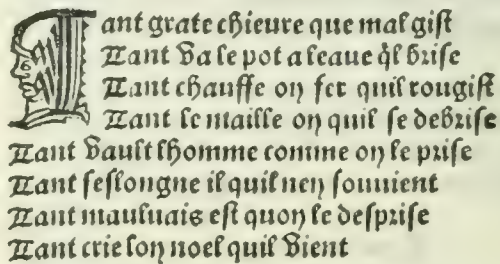 Tant grate chieure que mal gist
Tant va le pot a leaue q̃l brise
Tant chauffe on fer quil rougist
Tant le maille on quil se debrise
Tant vault lhomme comme on le prise
Tant seslongne il quil nen souuient
Tant mauluais est quon le desprise
Tant crie lon noel quil vient